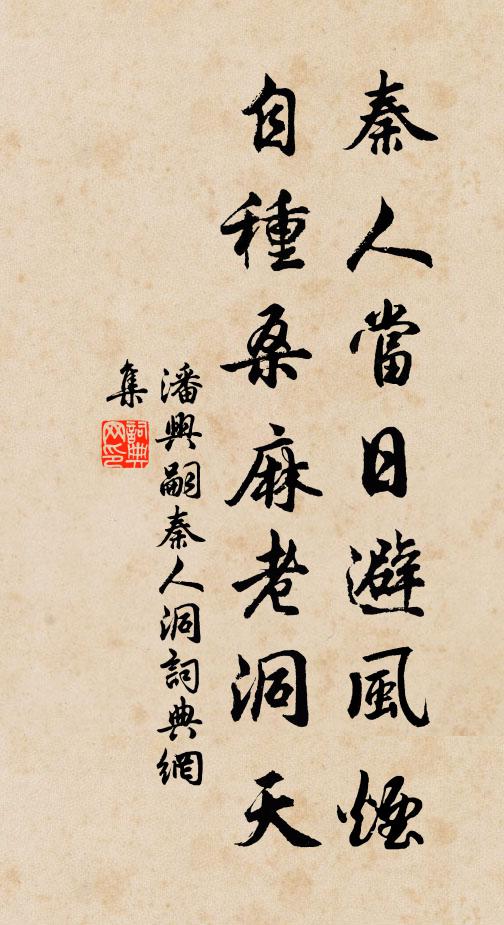 秦人當日避風煙
自種桑麻老洞天
潘興嗣秦人洞詞典網
集
詞典网印